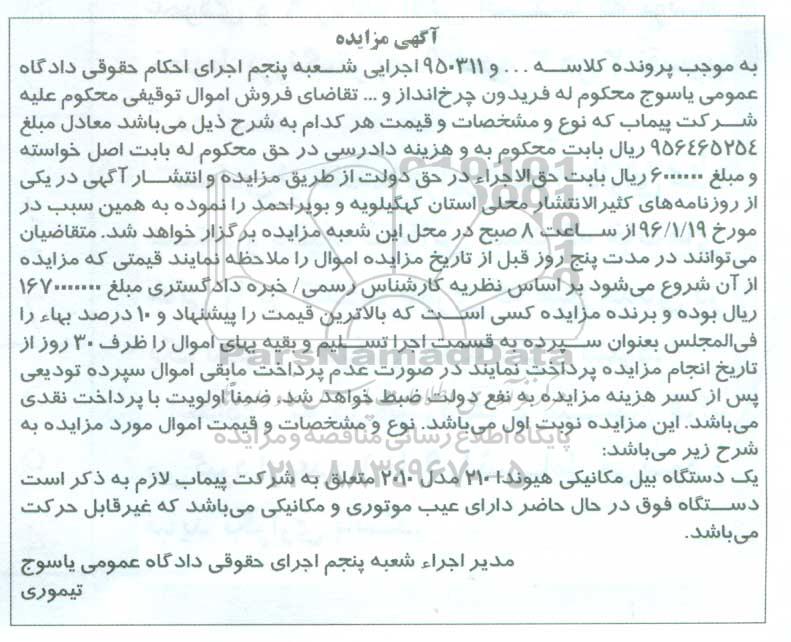 آگهی مزایده
به موجب پرونده کلاسه ... و ۹۵۰۳۱۱ اجرایی شعبه پنجم اجرای احکام حقوقی دادگاه
عمومی یاسوج محکوم له فریدون چرخ‌انداز و ... تقاضای فروش اموال توقیفی محکوم علیه
شرکت پیماب که نوع و مشخصات و قیمت هر کدام به شرح ذیل می‌باشد معادل مبلغ
۹۵۶۴۶۵۲۵۴ ریال بابت محکوم به و هزینه دادرسی در حق محکوم له بابت اصل خواسته
و مبلغ ۶۰۰۰۰۰۰ ریال بابت حق‌الاجراء در حق دولت از طریق مزایده و انتشار آگهی در یکی
از روزنامه‌های کثیرالانتشار محلی استان کهگیلویه و بویراحمد را نموده به همین سبب در
مورخ ۹۶/۱/۱۹ از ساعت ۸ صبح در محل این شعبه مزایده برگزار خواهد شد. متقاضیان
می‌توانند در مدت پنج روز قبل از تاریخ مزایده اموال را ملاحظه نمایند قیمتی که مزایده
از آن شروع می‌شود بر اساس نظریه کارشناس رسمی/ خبره دادگستری مبلغ ۱۶۷۰۰۰۰۰۰۰
ریال بوده و برنده مزایده کسی است که بالاترین قیمت را پیشنهاد و ۱۰ درصد بهاء را
فی‌المجلس بعنوان سپرده به قسمت اجرا تسلیم و بقیه بهای اموال را ظرف ۳۰ روز از
تاریخ انجام مزایده پرداخت نمایند در صورت عدم پرداخت مابقی اموال سپرده تودیعی
پس از کسر هزینه مزایده به نفع دولت ضبط خواهد شد. ضمنا اولویت با پرداخت نقدی
می‌باشد. این مزایده نوبت اول می‌باشد. نوع و مشخصات و قیمت اموال مورد مزایده به
شرح زیر می‌باشد:
یک دستگاه بیل مکانیکی هیوندا ۲۱۰ مدل ۲۰۱۰ متعلق به شرکت پیماب لازم به ذکر است
دستگاه فوق در حال حاضر دارای عیب موتوری و مکانیکی می‌باشد که غیرقابل حرکت
می‌باشد.
مدیر اجراء شعبه پنجم اجرای حقوقی دادگاه عمومی یاسوج
تیموری
ParsNamadData
پایگاه اطلاع رسانی مناقصه و مزایده
۰۲۱-۸۸۳۴۹۶۷۰-۵